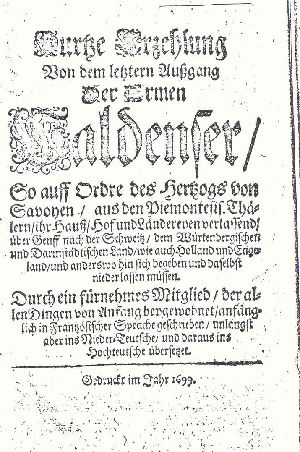 Kurtze Erzehlung
Von dem letztern Außgang
Der Armen
Waldenser/
So auff Ordre des Hertzogs von
Savoyen / aus den Piemontesis. Thä-
lern/ihr Hauß/Hof und Ländereyen verlassend/
über Genff nach der Schweitz/ dem Würtenbergischen
und Darmstädtischen Land/wie auch Holland und Enge-
land/und anderswo hin sich begeben und daselbst
niederlassen müssen.
Durch ein fürnehmes Mitglied / der al-
len Dingen von Anfang beygewohnet/anfäng-
lich in Frantzösischer Sprache geschrieben / unlängst
aber ins Nieder-Teutsche/ und daraus ins
Hochteutsche übersetzet.
Gedruckt im Jahr 1699.